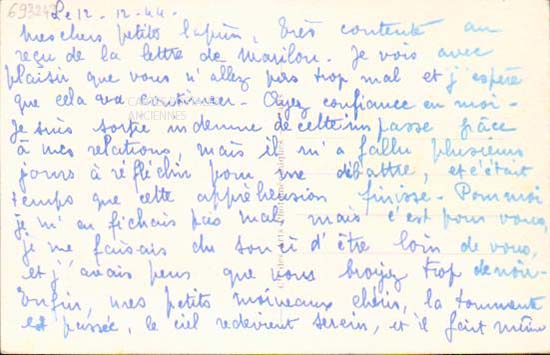 693243
Le 12 - 12 - 44 -
mes chers petits lapins, très contente au
reçu de la lettre de Marilou. Je vois avec
plaisir que vous n'allez pas trop mal et j'espère
que cela va continuer - Ayez confiance en moi -
ANCIENNES
Je suis sortie indemne de cette impasse grâce
à mes relations, mais il m'a fallu plusieurs
jours à réfléchir pour me débattre, et c'était
temps que cette appréhension finisse - Pour moi
je m'en fichais pas mal, mais c'est pour vous,
je me faisais du souci d'être loin de vous,
et j'avais peur que vous broyiez trop de noir -
Enfin, mes petits moineaux chéris, la tourmente
est passée, le ciel redevient serein, et il fait même